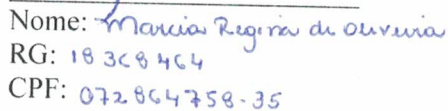 Nome: Marcia Regina de Oliveira
RG: 18 368 464
CPF: 072864758-35